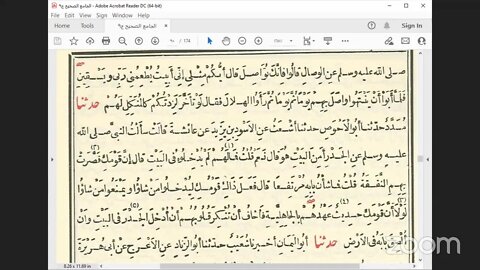 الجامع الصحيح ج٩ - Adobe Acrobat Reader DC (64-bit)
Home Tools الجامع الصحيح ج٩ Sign In
/ 174
صلى الله عليه وسلم عن الوصال قالوا فانك تواصل قال أيكم مثلي إني أبيت يطعمني ربي ويسقين
فلما أبوا أن ينتهوا واصل بهم يوما ثم يوما ثم رأوا الهلال فقال لو تأخر لزدتكم كالمنكل لهم حدثنا
مسدد حدثنا أبو الأحوص حدثنا أشعث عن الأسود بن يزيد عن عائشة قالت سألت النبي صلى الله
عليه وسلم عن الجدر أمن البيت هو قال نعم قلت فما لهم لم يدخلوه في البيت قال إن قومك قصرت
بهم النفقة قلت فما شأن بابه مرتفعا قال فعل ذاك قومك ليدخلوا من شاؤا ويمنعوا من شاؤا
لولا أن قومك حديث عهدهم بالجاهلية فأخاف أن تنكر قلوبهم أن أدخل الجدر في البيت وأن
ألصق بابه في الأرض حدثنا أبو اليمان أخبرنا شعيب حدثنا أبو الزناد عن الأعرج عن أبي هريرة
8.26 x 11.69 in
zoom